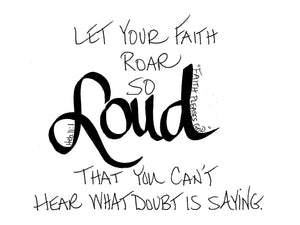 LET YOUR FAITH
ROAR
SO
Loud
"FAITH PLEASES GOD"
THAT YOU CAN'T
HEAR WHAT DOUBT IS SAYING.